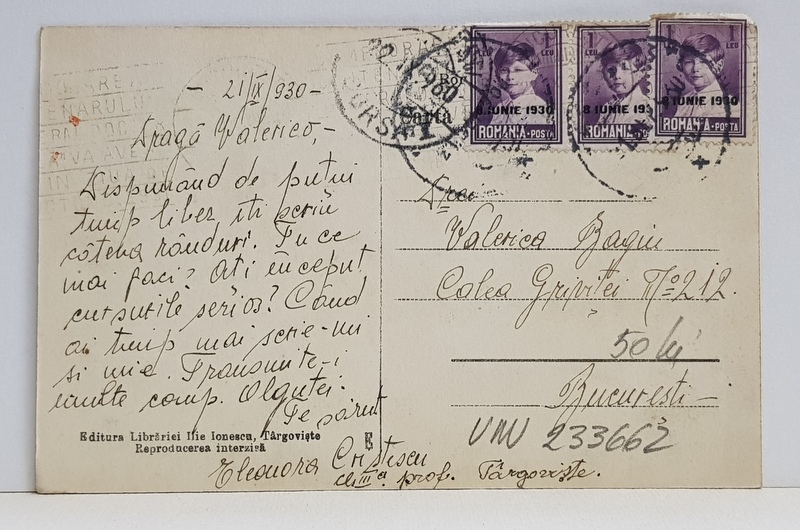 - 21/IX/930 -
Dragă Valerico,-
Dispunând de puțin
timp liber îți scriu
câteva rânduri. Tu ce
mai faci? Ați început
cursurile serios? Când
ai timp mai scrie-mi
și mie. Transmite-i
multe comp. Olguței.
Te sărut
Eleonora Cristescu
cl. III a prof. Târgoviște.
Editura Librăriei Ilie Ionescu, Târgoviște
Reproducerea interzisă
E
Carta
1 LEU
8 IUNIE 1930
ROMÂNIA-POSTA
1 LEU
8 IUNIE 193
ROMÂNIA
1 LEU
8 IUNIE 1930
ROMÂNIA-POSTA
Valerica Bagiu
Calea Griviței No 212.
50 lei
București -
UNU 233662